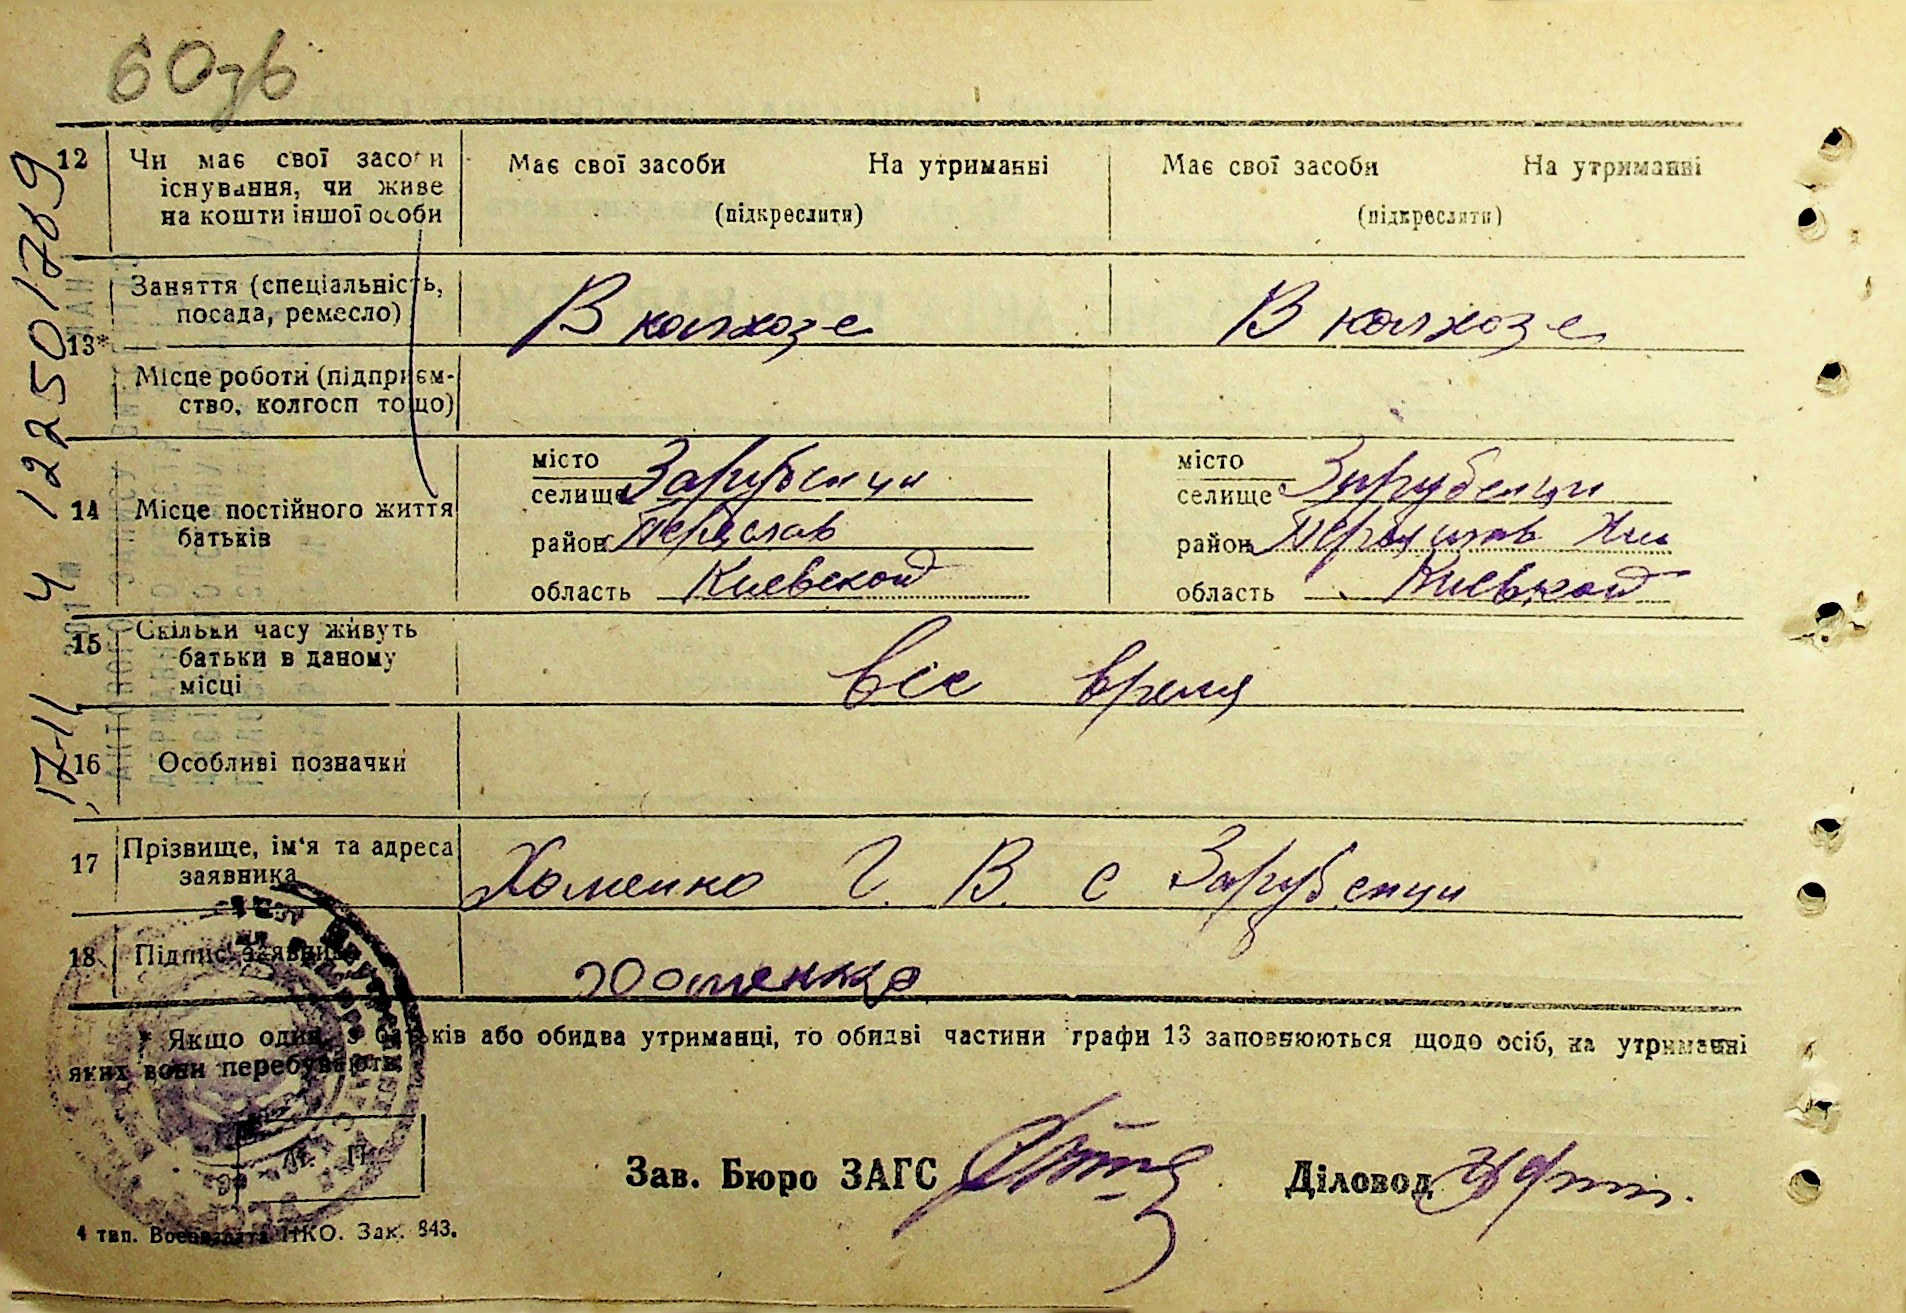 60зв
12 Чи має свої засоби Має свої засоби На утриманні Має свої засоби На утриманні
існування, чи живе
на кошти іншої особи (підкреслити) (підкреслити)
Заняття (спеціальність,
посада, ремесло) В колхозе В колхозе
13*
Місце роботи (підприєм-
ство, колгосп тощо)
місто місто
селище Зарубенци селище Зарубенци
14 Місце постійного життя
батьків район Переслав район
область Киевской область Киевской
15 Скільки часу живуть
батьки в даному
місці все время
16 Особливі позначки
17 Прізвище, ім'я та адреса
заявника Хоменко Г. В. с Зарубенци
18 Підпис заявника Хоменко
* Якщо один з батьків або обидва утриманці, то обидві частини графи 13 заповнюються щодо осіб, на утриманні
яких вони перебувають.
М. П.
Зав. Бюро ЗАГС Діловод
4 тип. Воениздата НКО. Зак. 843.